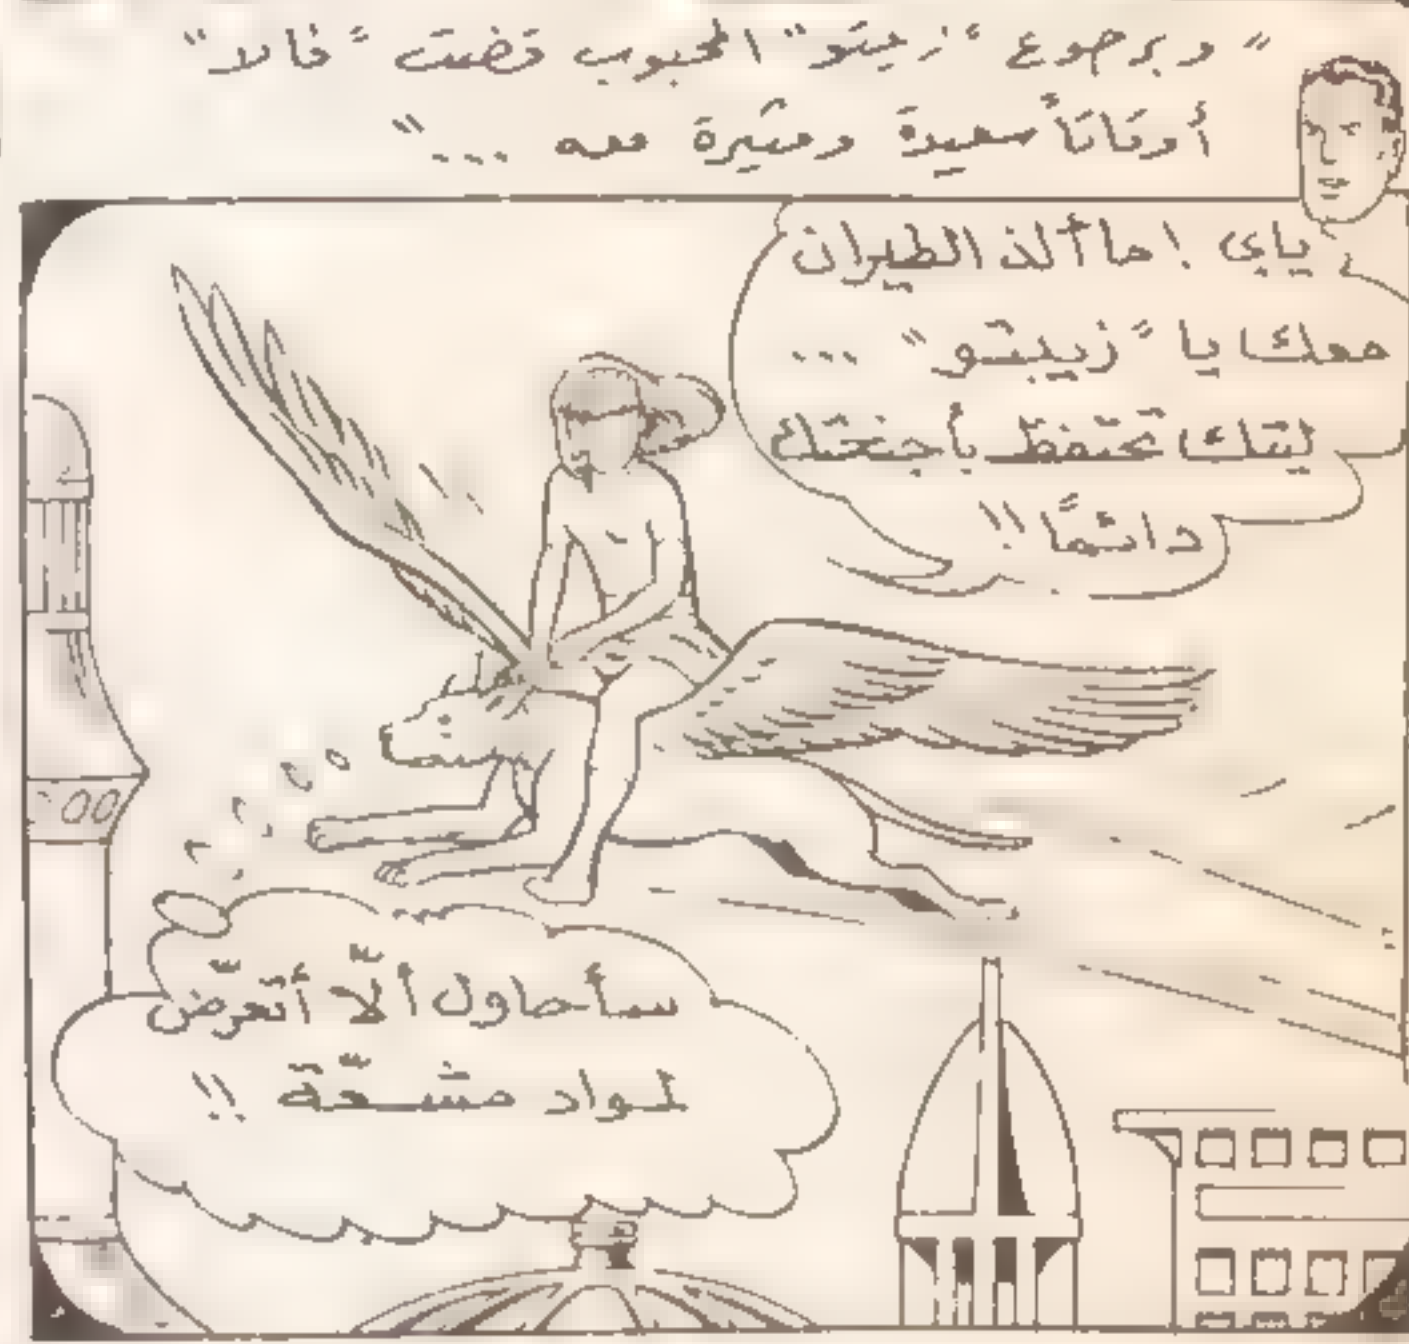 " وبرجوع "زيبتو" المحبوب قضت "فالا"
أوقاتاً سعيدة ومثيرة معه ..."
ياي ! ما ألذ الطيران
معك يا "زيبتو" ...
ليتك تحتفظ بأجنحتك
دائمًا !!
سأحاول ألّا أتعرّض
لمواد مشعّة !!